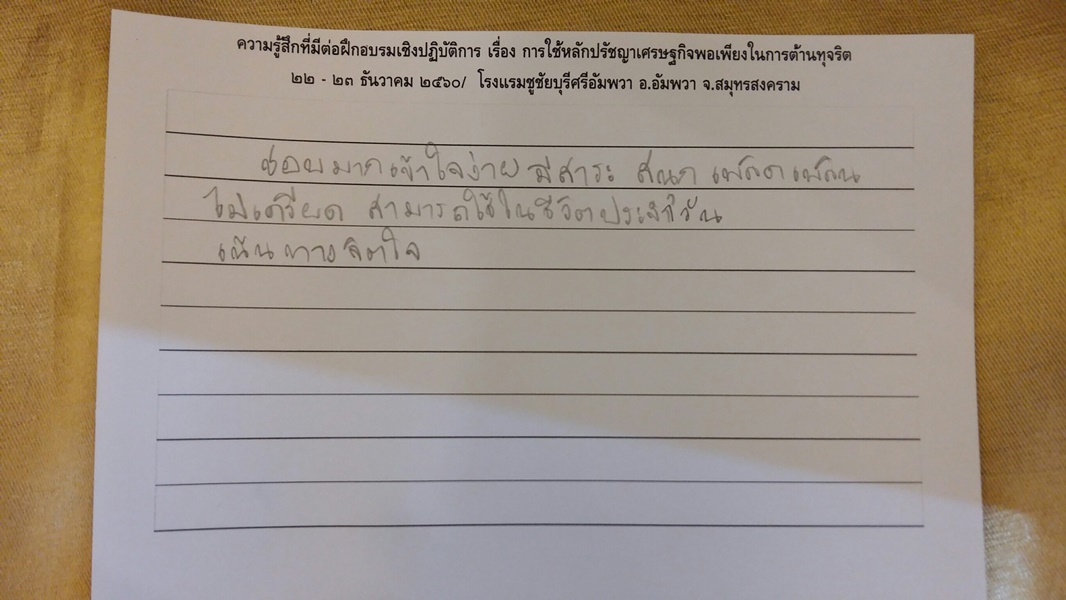 ความรู้สึกที่มีต่อฝึกอบรมเชิงปฏิบัติการ เรื่อง การใช้หลักปรัชญาเศรษฐกิจพอเพียงในการต้านทุจริต
๒๒ - ๒๓ ธันวาคม ๒๕๖๐/ โรงแรมชูชัยบุรีศรีอัมพวา อ.อัมพวา จ.สมุทรสงคราม
ชอบมากเข้าใจง่าย มีสาระ สนุก เพลิดเพลิน
ไม่เครียด สามารถใช้ในชีวิตประจำวัน
เน้นทางจิตใจ